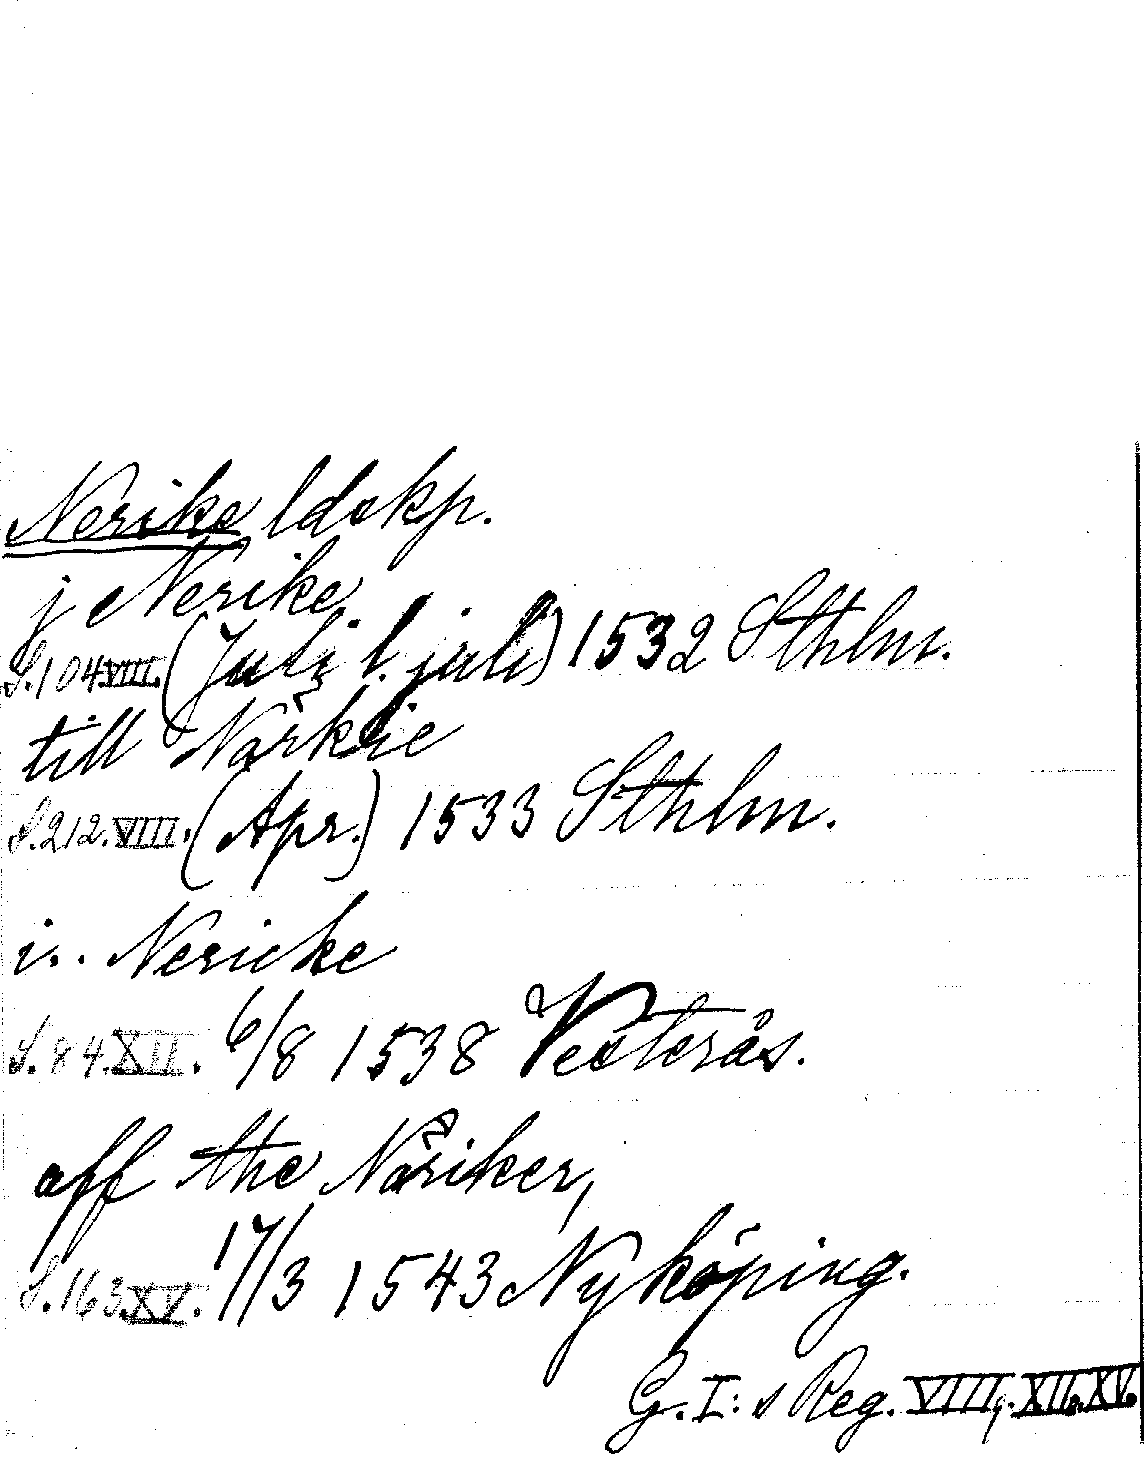 Nerike ldskp.
j Nerike
S.104 VIII. (Julij l. juli) 1532 Sthlm.
till Närkie
S.212. VIII. (Apr.) 1533 Sthlm.
i.. Nericke
S.84. XII. 6/8 1538 Vesterås.
aff the Näriker,
S.163 XV. 17/3 1543 Nyköping.
G. I:s Reg. VIII, XII o. XV.